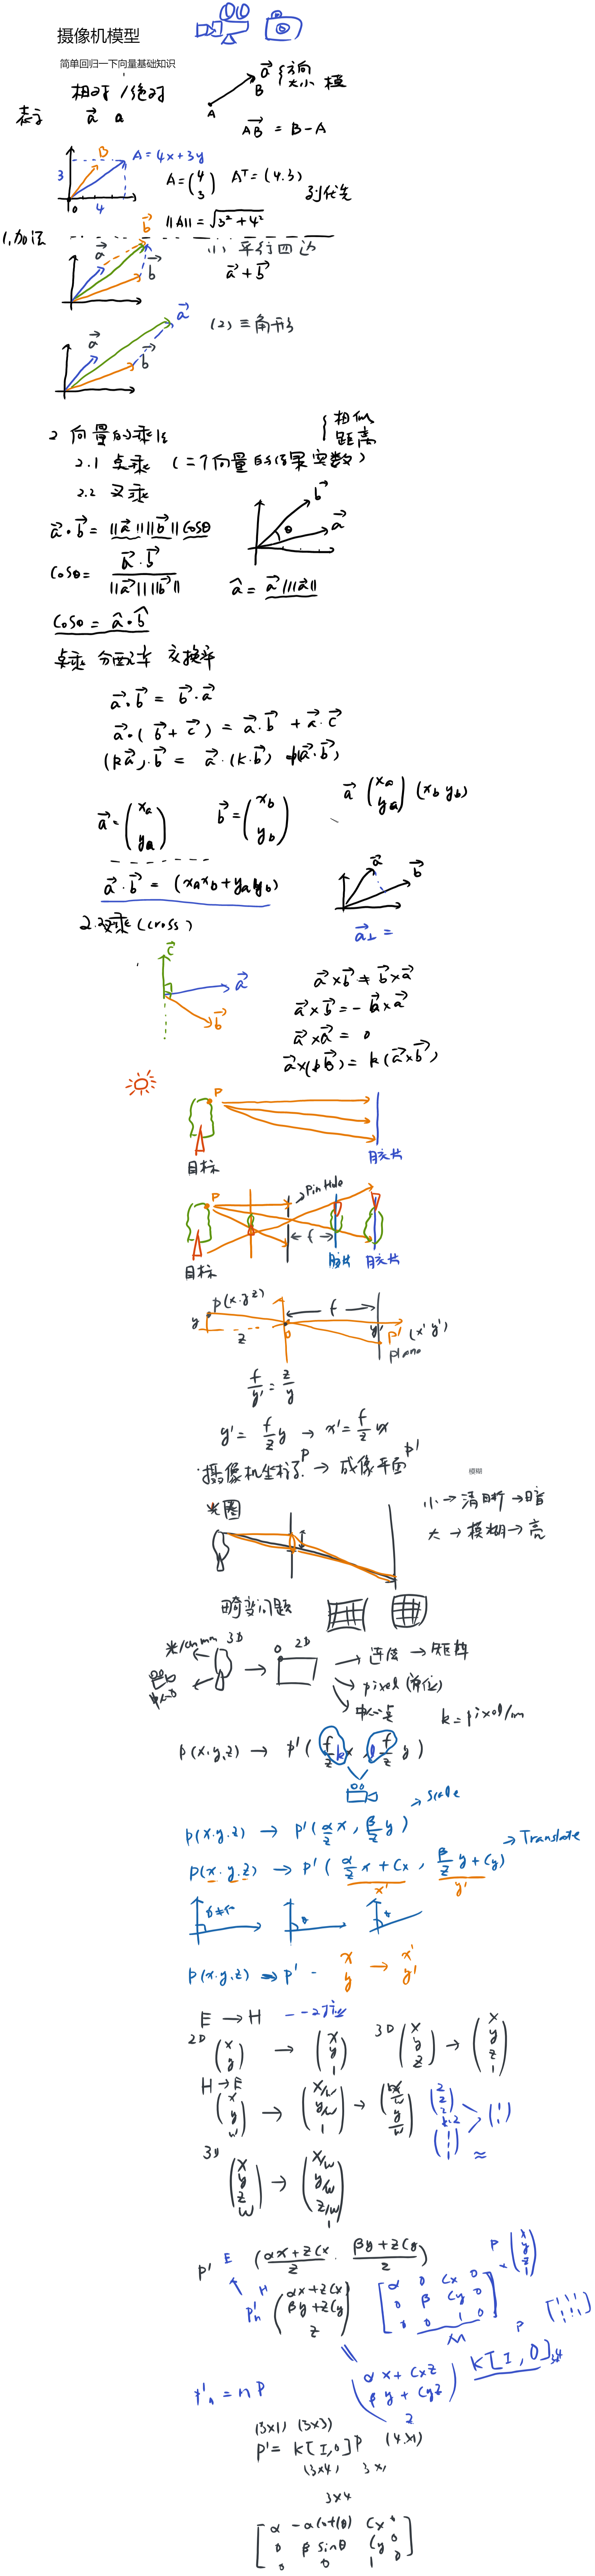 摄像机模型
简单回归一下向量基础知识
相对 / 绝对
表示 a⃗ a
a⃗ { 方向 大小 模
A B
A⃗B⃗ = B - A
B A = 4x + 3y
3
0 4
A = (4 3) Aᵀ = (4.3) 列优先
||A|| = √(3² + 4²)
1.加法
(1) 平行四边
a⃗ + b⃗
a⃗ b⃗ b⃗
(2) 三角形
a⃗ a⃗ b⃗
2 向量的乘法 { 相似 距离
2.1 点乘 (二个向量的结果实数)
2.2 叉乘
a⃗·b⃗ = ||a⃗|| ||b⃗|| cosθ
b⃗ θ a⃗
cosθ = a⃗·b⃗ / ||a⃗|| ||b⃗||
â = a⃗/||a⃗||
cosθ = â·b̂
点乘 分配率 交换率
a⃗·b⃗ = b⃗·a⃗
a⃗·(b⃗ + c⃗) = a⃗·b⃗ + a⃗·c⃗
(ka⃗)·b⃗ = a⃗·(k·b⃗) k(a⃗·b⃗)
a⃗ = (xa ya) b⃗ = (xb yb) a⃗ (xa ya) (xb yb)
a⃗·b⃗ = (xaxb + yayb)
a⃗ b⃗
a⃗⊥ =
2.2叉乘 (cross)
c⃗ a⃗ b⃗
a⃗×b⃗ ≠ b⃗×a⃗
a⃗×b⃗ = -b⃗×a⃗
a⃗×a⃗ = 0
a⃗×(kb⃗) = k(a⃗×b⃗)
P
目标 胶片
P PinHole
f
目标 胶片 胶片
p(x.y.z) f
y z o y' p' (x' y')
plane
f/y' = z/y
y' = f/z y → x' = f/z x
摄像机坐标系 P → 成像平面 p'
模糊
光圈
小 → 清晰 → 暗
大 → 模糊 → 亮
畸变问题
3D 0 2D
→ 连续 → 矩阵
→ pixel (单位)
→ 中心点
k = pixel/m
p(x.y.z) → p'( f/z k x , l f/z y )
p(x.y.z) → p'( α/z x , β/z y ) → Scale
p(x.y.z) → p'( α/z x + Cx , β/z y + Cy ) → Translate
x' y'
p(x.y.z) → p' - x y → x' y'
E → H
2D (x y) → (x y 1) 3D (x y z) → (x y z 1)
H → E
(x y w) → (x/w y/w 1) → (x/w y/w)
3D (x y z w) → (x/w y/w z/w 1)
≈
p' E (αx + zCx / z . βy + zCy / z) P (x y z 1)
p'h H (αx + zCx βy + zCy z) [α 0 Cx 0 0 β Cy 0 0 0 1 0]
M P
(αx + Cxz βy + Cyz z) K[I, 0]
p'h = M P
(3x1) (3x3)
P' = K[I,0] P (4x1)
(3x4)
3x4
[α -αcot(θ) Cx 0
0 β sinθ Cy 0
0 0 1 0]